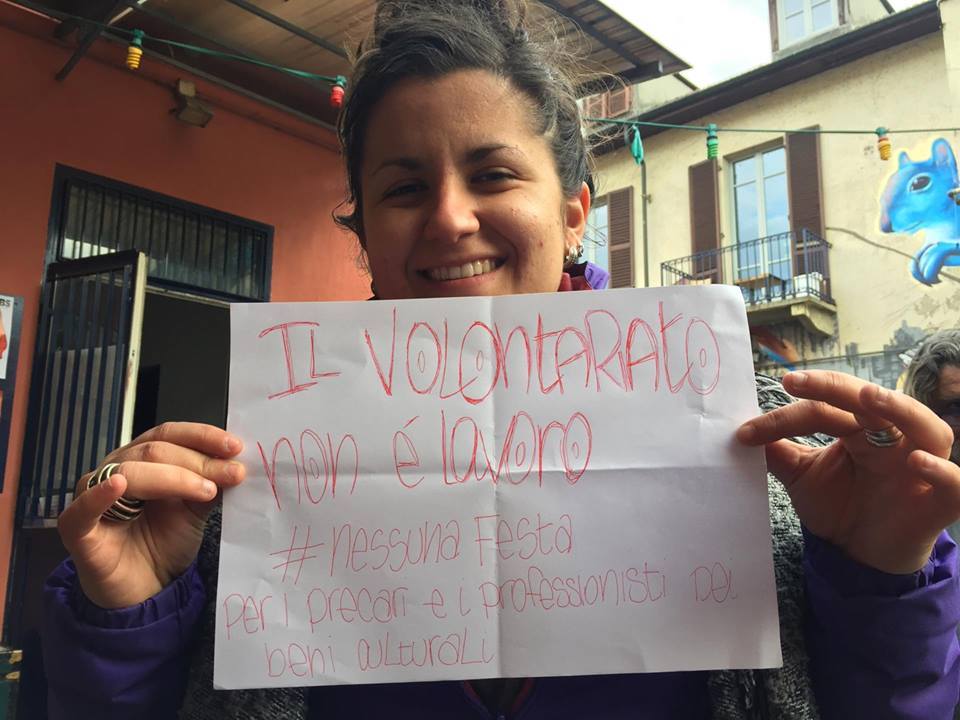 IL VOLONTARIATO
non é lavoro
#nessuna Festa
per i precari e i professionisti dei
beni culturali
BS